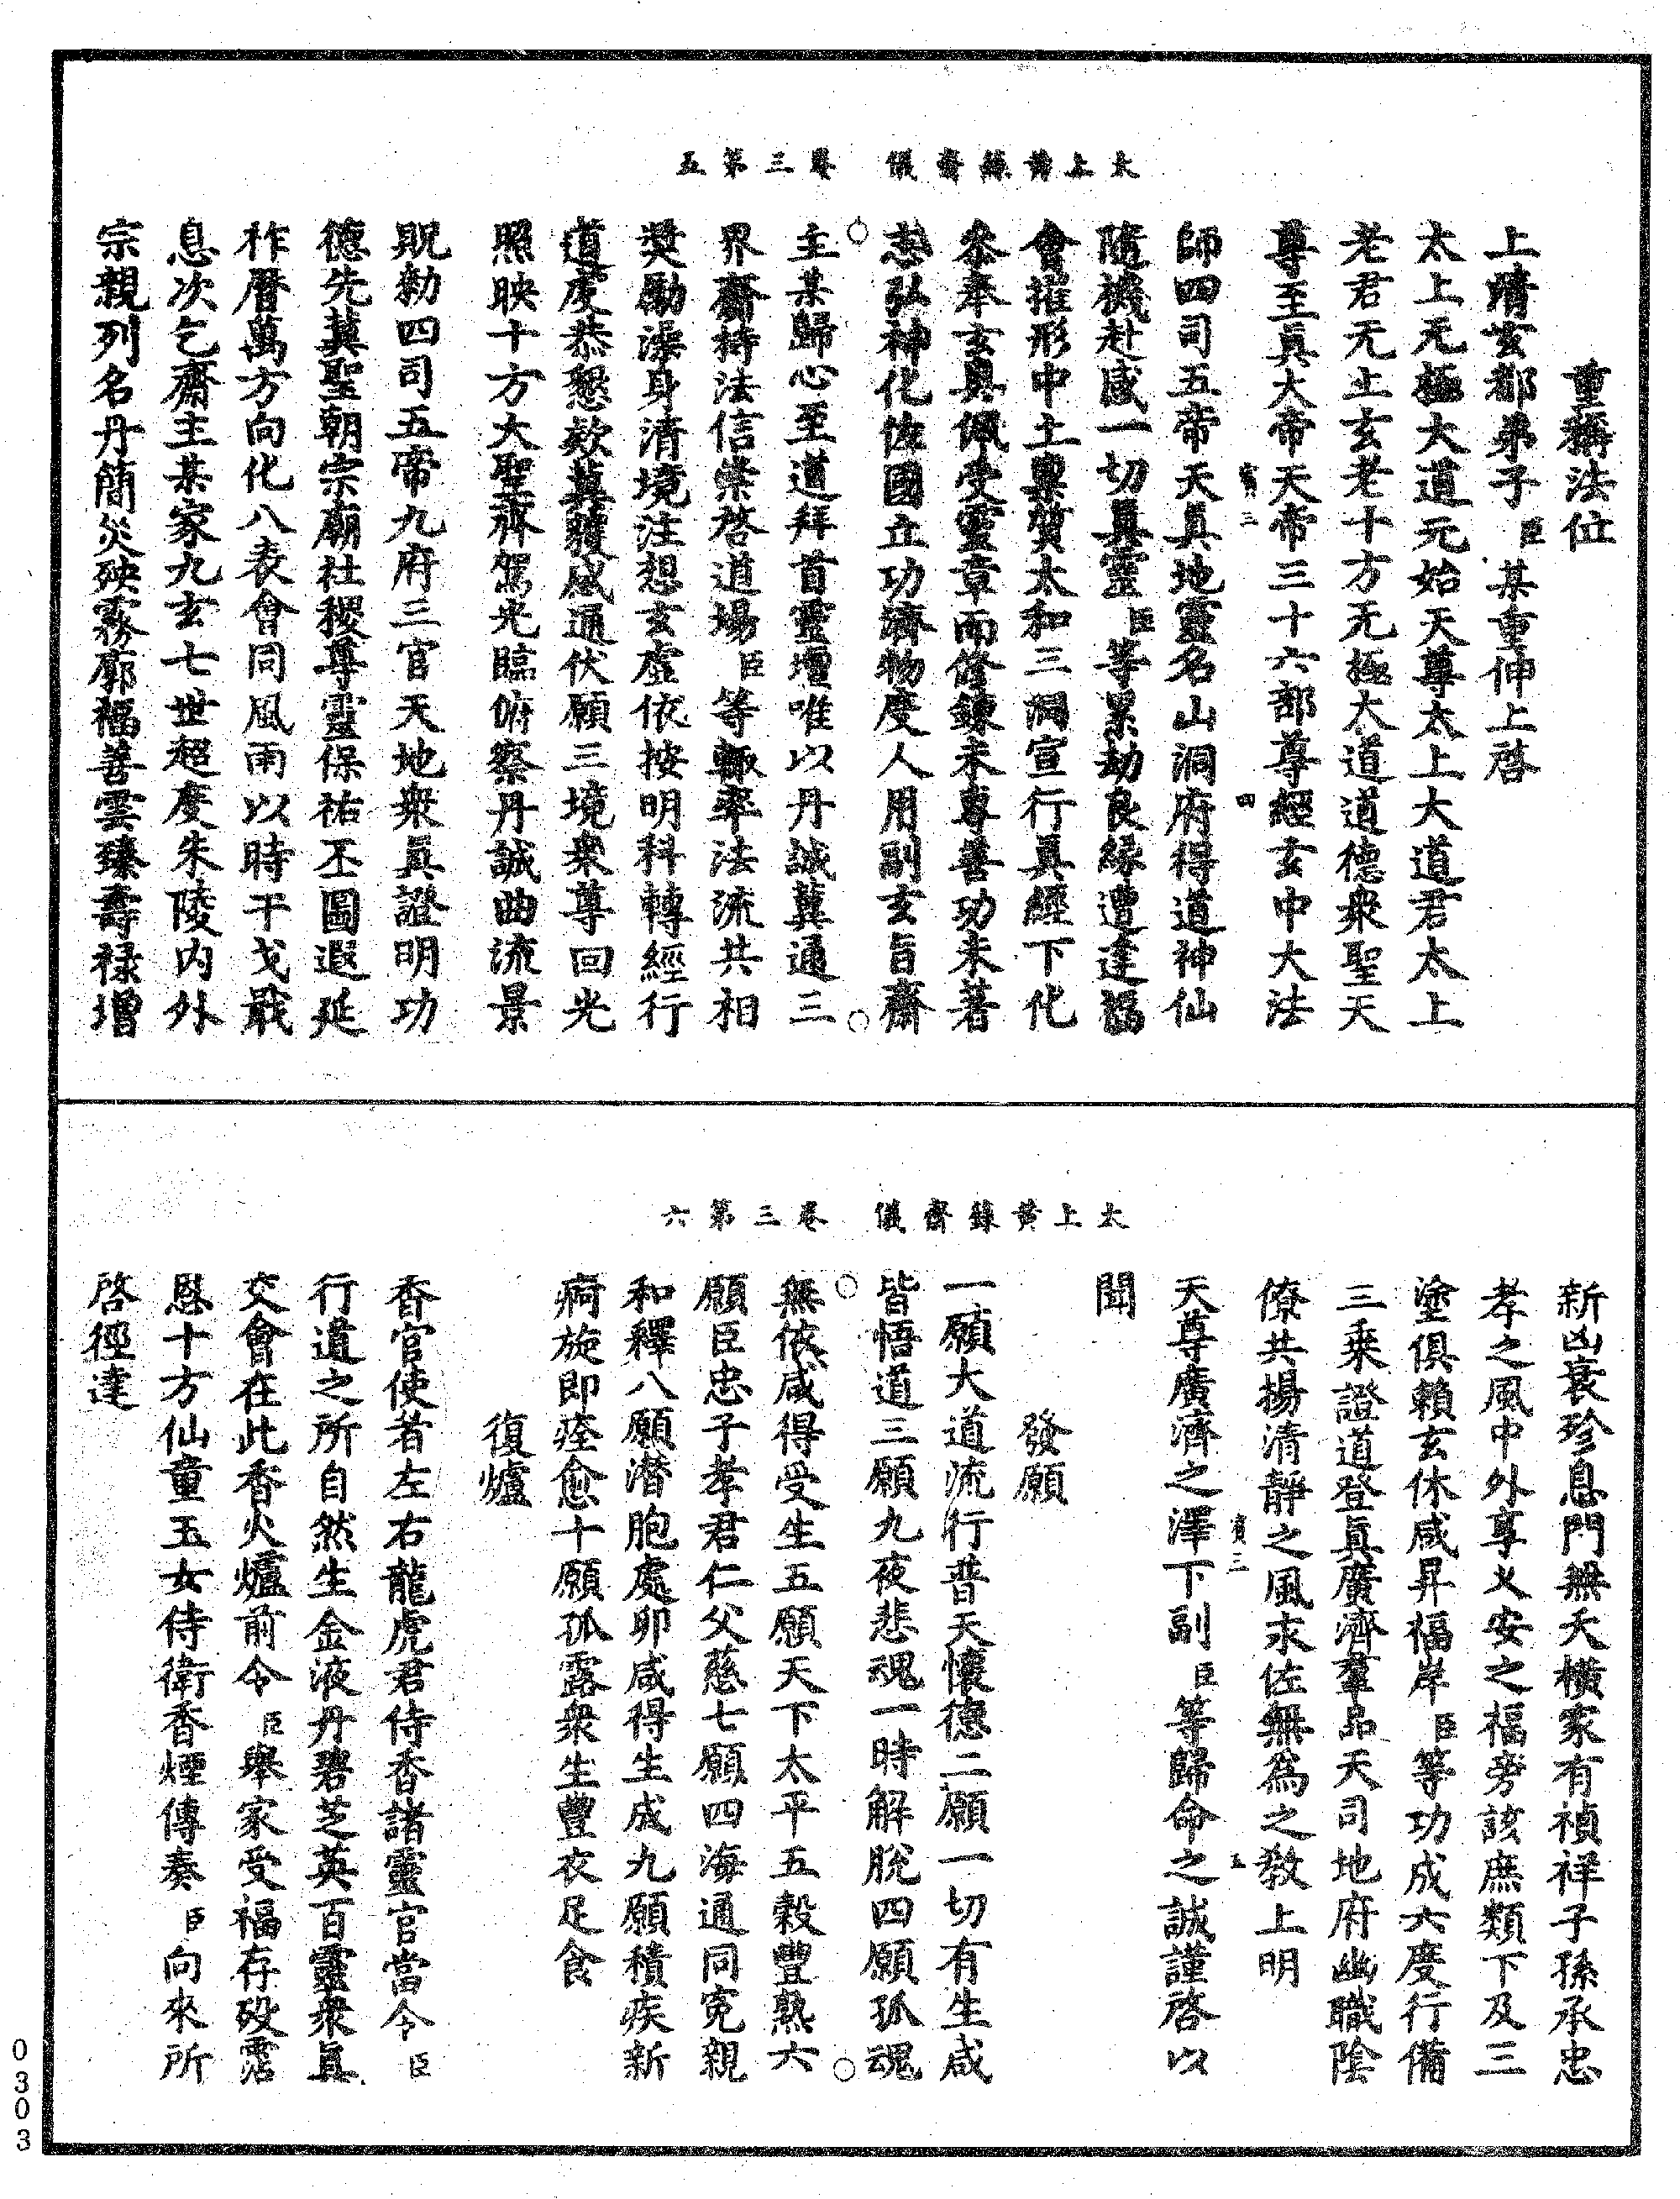 太上黃籙齋儀　卷三第五
重稱法位
上清玄都弟子臣某重伸上啓
太上无極大道元始天尊太上大道君太上
老君无上玄老十方无極大道道德衆聖天
尊至眞大帝天帝三十六部尊經玄中大法
師四司五帝天眞地靈名山洞府得道神仙
隨機赴感一切眞靈臣等累劫良緣遭逢福
會摧形中土稟質太和三洞宣行眞經下化
忝奉玄眞佩受靈章而修鍊未專善功未著
志弘神化佐國立功濟物度人用副玄旨齋
主某歸心至道拜首靈壇唯以丹誠冀通三
界齋持法信崇啓道場臣等輙率法流共相
奬勵澡身清境注想玄虛依按明科轉經行
道虔恭懇款冀獲感通伏願三境衆尊回光
照映十方大聖齊駕光臨俯察丹誠曲流景
貺勑四司五帝九府三官天地衆眞證明功
德先冀聖朝宗廟社稷尊靈保祐丕圖遐延
祚曆萬方向化八表會同風雨以時干戈戢
息次乞齋主某家九玄七世超度朱陵內外
宗親列名丹簡災殃霧廓福善雲臻壽祿增
太上黃籙齋儀　卷三第六
新凶衰殄息門無夭橫家有禎祥子孫承忠
孝之風中外享乂安之福旁該庶類下及三
塗俱賴玄休咸昇福岸臣等功成六度行備
三乘證道登眞廣濟羣品天司地府幽職陰
僚共揚清靜之風求佐無爲之敎上明
天尊廣濟之澤下副臣等歸命之誠謹啓以
聞
發願
一願大道流行普天懷德二願一切有生咸
皆悟道三願九夜悲魂一時解脫四願孤魂
無依咸得受生五願天下太平五穀豐熟六
願臣忠子孝君仁父慈七願四海通同寃親
和釋八願潛胞處卵咸得生成九願積疾新
痾旋即痊愈十願孤露衆生豐衣足食
復爐
香官使者左右龍虎君侍香諸靈官當令臣
行道之所自然生金液丹碧芝英百靈衆眞
交會在此香火爐前令臣舉家受福存殁霑
恩十方仙童玉女侍衛香煙傳奏臣向來所
啓徑達
0303